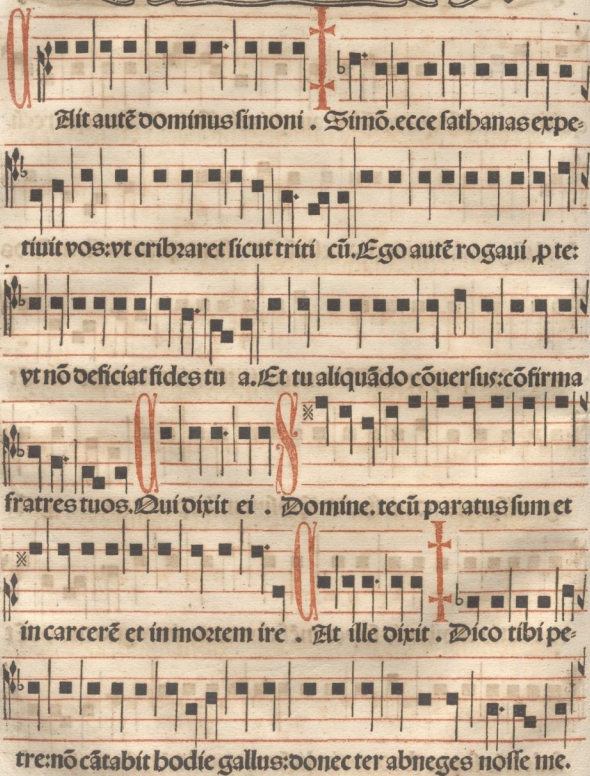 C Ait autē dominus simoni . ✝ Simō. ecce sathanas expe-
tiuit vos: vt cribraret sicut triti cū. Ego autē rogaui ꝓ te:
vt nō deficiat fides tu a. Et tu aliquādo cōuersus: cōfirma
fratres tuos. C Qui dixit ei . S Domine. tecū paratus sum et
in carcerē et in mortem ire . C At ille dixit . ✝ Dico tibi pe-
tre: nō cātabit hodie gallus: donec ter abneges nosse me.